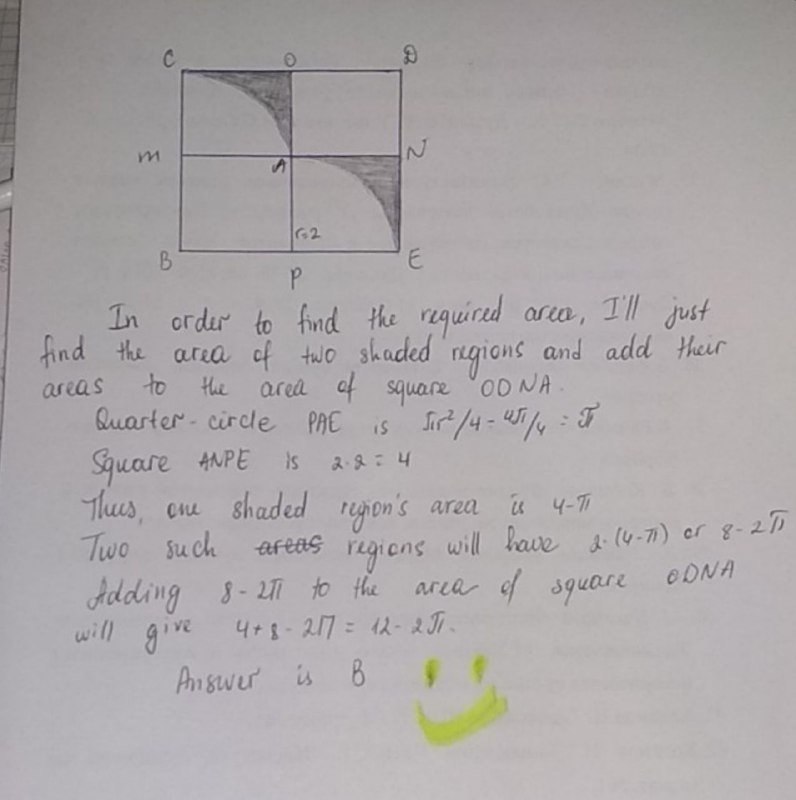 C O D
m A N
r=2
B P E
In order to find the required area, I'll just
find the area of two shaded regions and add their
areas to the area of square ODNA.
Quarter-circle PAE is πr²/4 = 4π/4 = π
Square ANPE is 2·2 = 4
Thus, one shaded region's area is 4-π
Two such areas regions will have 2·(4-π) or 8-2π
Adding 8-2π to the area of square ODNA
will give 4+8-2π = 12-2π.
Answer is B